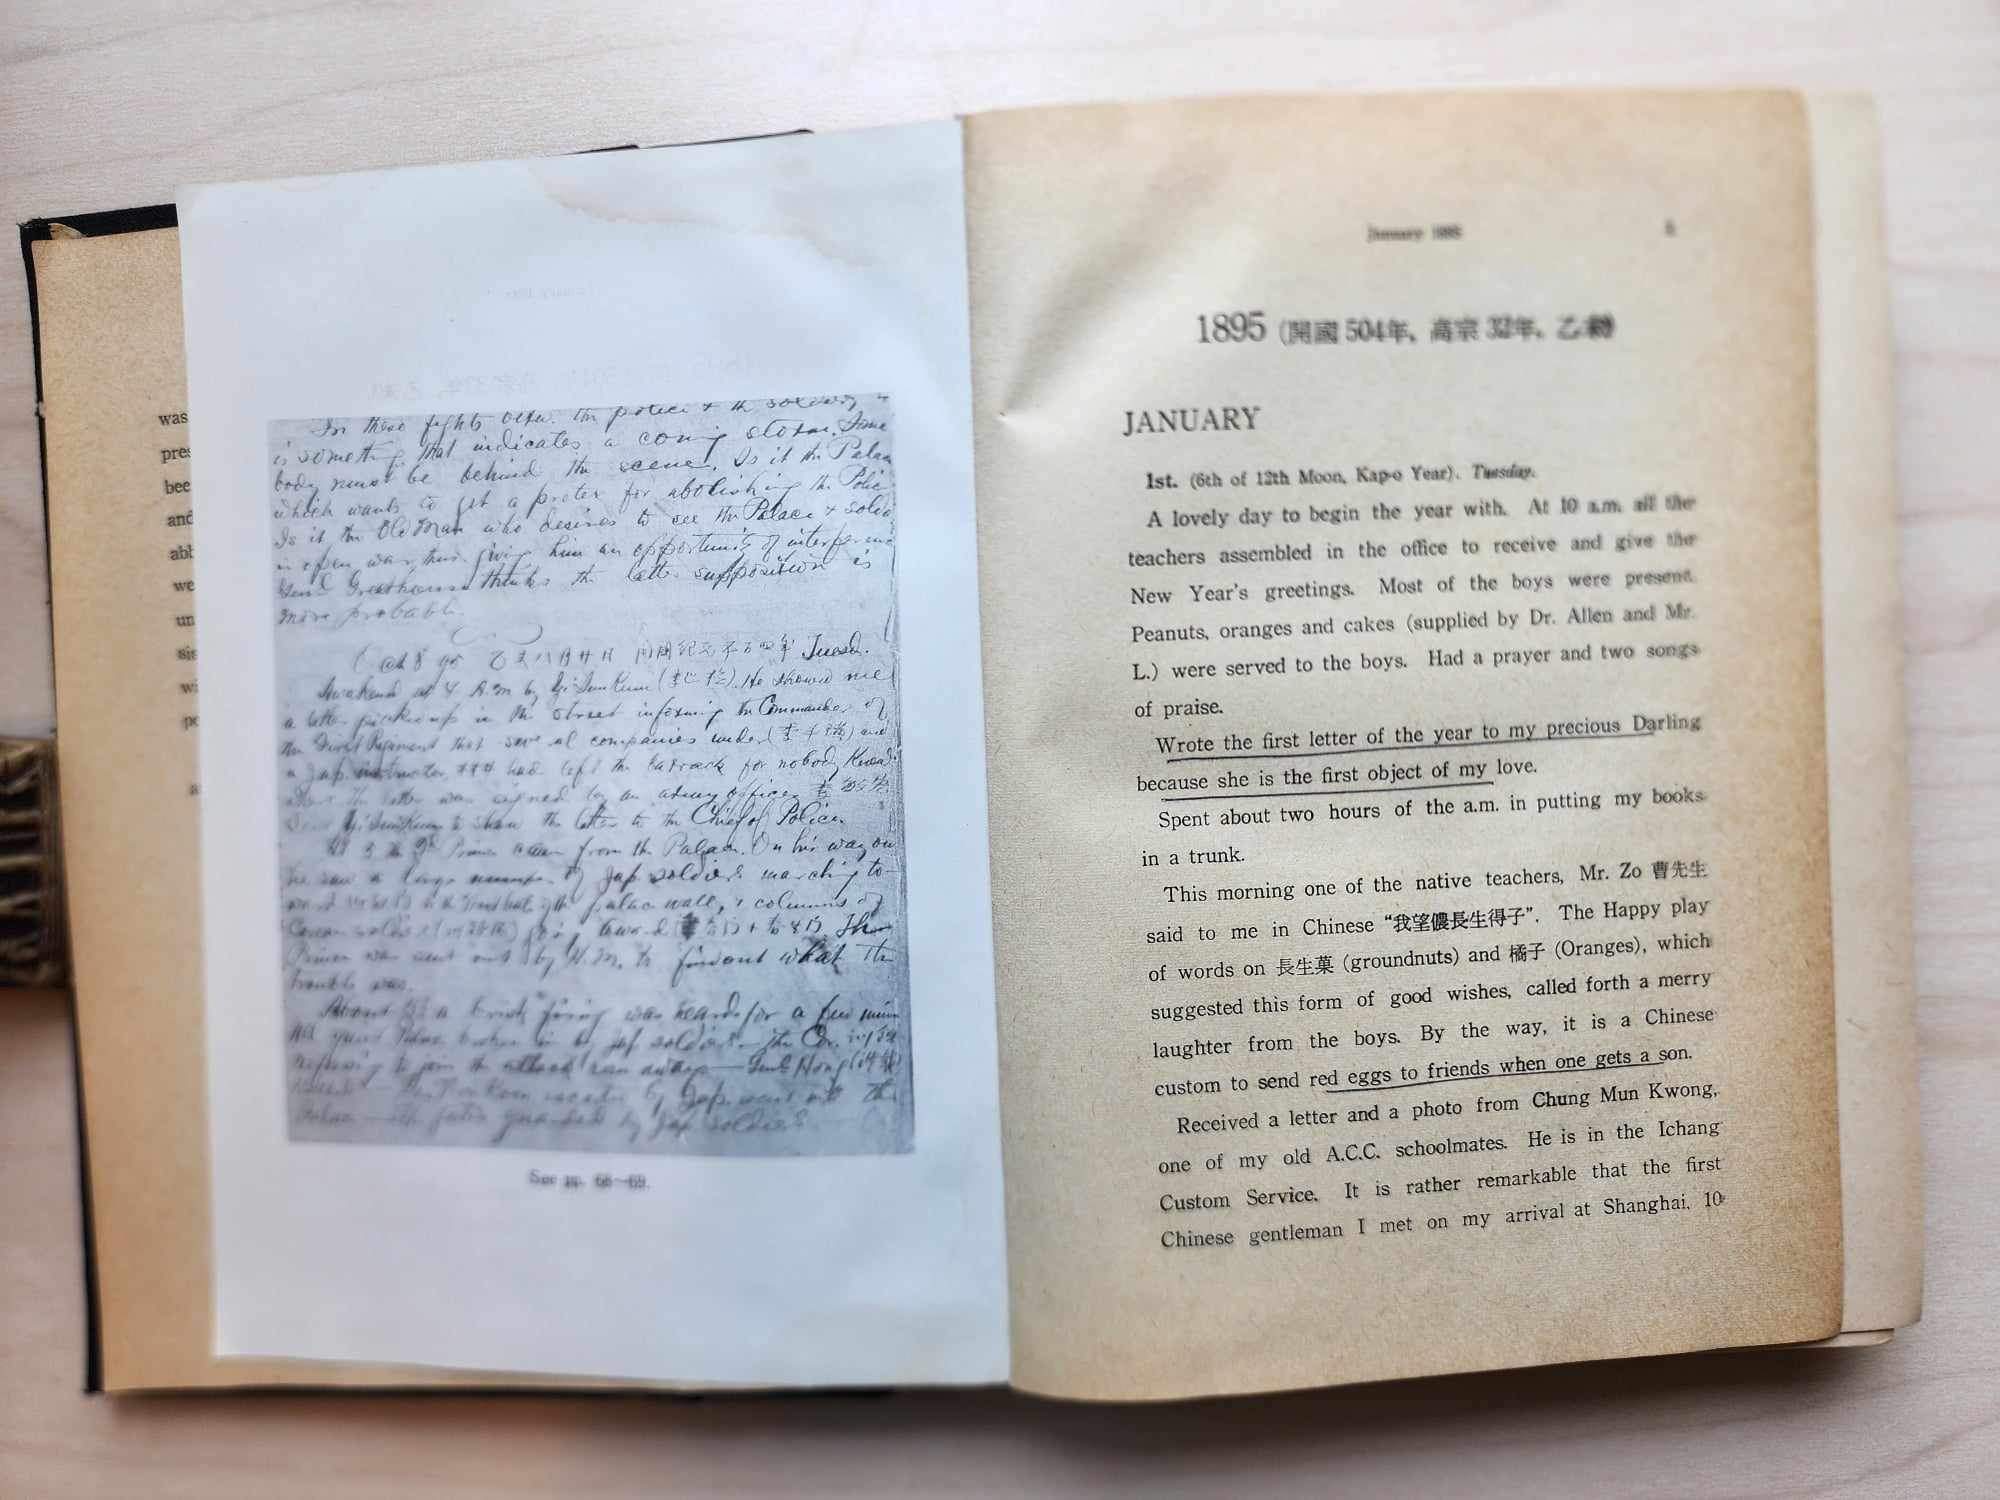 was
pres
bee
and
abb
we
un
sig
wi
po
a
In these fights betw. the police & the soldiery
is something that indicates a coming storm. Some
body must be behind the scene. Is it the Palace
which wants to get a pretex for abolishing the Police
Is it the Old Man who desires to see the Palace & soldi
in open war, thus giving him an opportunity of interference
Genl Greathouse thinks the latter supposition is
more probable.
8 95 乙未八月廿日 Tuesd.
Awakened at 4 A.m by Yi . He showed me
a letter picked up in the street informing the Commander of
the First Regiment that several companies under and
a Jap. instructor, had left the barrack for nobody knows
where the letter was signed by an army officer
Yi to show the letter to the Chief of Police.
Prince came from the Palace. On his way out
he saw a large number of Jap soldiers marching to-
palace wall, & columns of
Corean soldiers
Prince was sent out by H.M. to find out what the
trouble was.
About a brisk firing was heard for a few min
by Jap soldiers — the Cor.
refusing to join the attack ran away — Genl Hong
by Jap. the
guarded by Jap soldiers
See pp. 66—69.
January 1895 5
1895 (開國 504年, 高宗 32年, 乙未)
JANUARY
1st. (6th of 12th Moon, Kap-o Year). Tuesday.
A lovely day to begin the year with. At 10 a.m. all the
teachers assembled in the office to receive and give the
New Year's greetings. Most of the boys were present.
Peanuts, oranges and cakes (supplied by Dr. Allen and Mr.
L.) were served to the boys. Had a prayer and two songs
of praise.
Wrote the first letter of the year to my precious Darling
because she is the first object of my love.
Spent about two hours of the a.m. in putting my books
in a trunk.
This morning one of the native teachers, Mr. Zo 曹先生
said to me in Chinese “我望儂長生得子”. The Happy play
of words on 長生菓 (groundnuts) and 橘子 (Oranges), which
suggested this form of good wishes, called forth a merry
laughter from the boys. By the way, it is a Chinese
custom to send red eggs to friends when one gets a son.
Received a letter and a photo from Chung Mun Kwong,
one of my old A.C.C. schoolmates. He is in the Ichang
Custom Service. It is rather remarkable that the first
Chinese gentleman I met on my arrival at Shanghai, 10